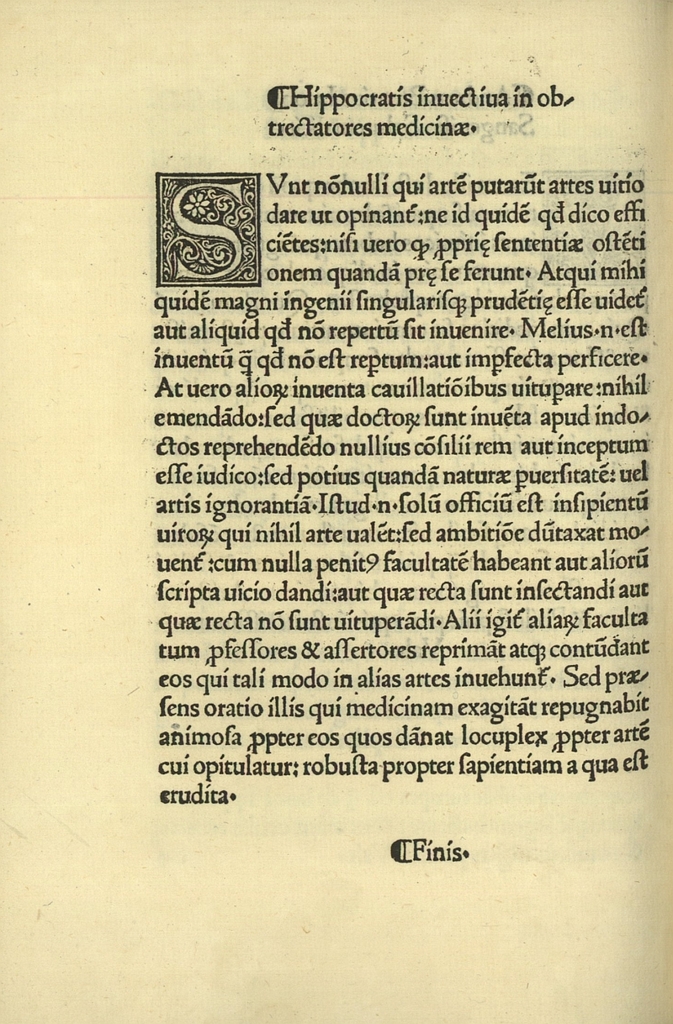 ¶Hippocratis inuectiua in ob-
trectatores medicinæ.
SVnt nōnulli qui artē putarūt artes uitio
dare ut opinant᷑:ne id quidē qđ dico effi
ciētes:nisi uero ꝙ ꝓprię sententiæ ostēti
onem quandā prę se ferunt. Atqui mihi
quidē magni ingenii singularisqꝫ prudētię esse uidet᷑
aut aliquid qđ nō repertū sit inuenire. Melius.n.est
inuentū q̄ qđ nō est reꝑtum:aut imꝑfecta perficere.
At uero alioꝝ inuenta cauillatiōibus uituꝑare:nihil
emendādo:sed quæ doctoꝝ sunt inuēta apud indo-
ctos reprehendēdo nullius cōsilii rem aut inceptum
esse iudico:sed potius quandā naturæ ꝑuersitatē: uel
artis ignorantiā.Istud.n.solū officiū est insipientū
uiroꝝ qui nihil arte ualēt:sed ambitiōe dūtaxat mo-
uent᷑ :cum nulla penitꝰ facultatē habeant aut aliorū
scripta uicio dandi:aut quæ recta sunt insectandi aut
quæ recta nō sunt uituperādi.Alii igit᷑ aliaꝝ faculta
tum ꝓfessores & assertores reprimāt atqꝫ contūdant
eos qui tali modo in alias artes inuehunt᷑. Sed præ-
sens oratio illis qui medicinam exagitāt repugnabit
animosa ꝓpter eos quos dānat locuplex ꝓpter artē
cui opitulatur: robusta propter sapientiam a qua est
erudita.
¶Finis.